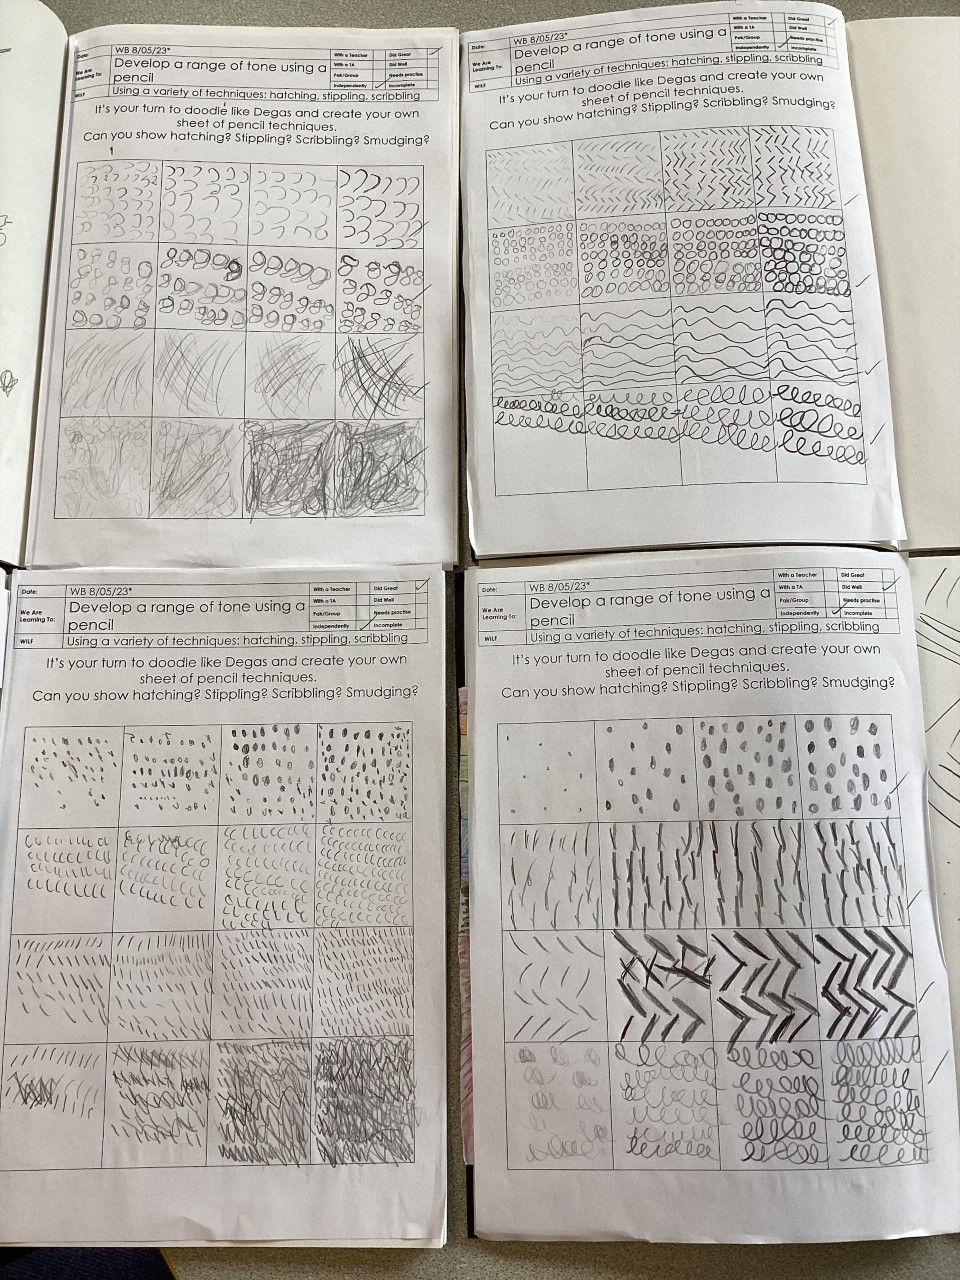 Date:
WB 8/05/23*
With a Teacher
Did Great
With a TA
Did Well
We Are Learning To:
Develop a range of tone using a
pencil
Pair/Group
Needs practise
Independently
Incomplete
WILF
Using a variety of techniques: hatching, stippling, scribbling
It's your turn to doodle like Degas and create your own
sheet of pencil techniques.
Can you show hatching? Stippling? Scribbling? Smudging?
Date:
WB 8/05/23*
With a Teacher
Did Great
With a TA
Did Well
We Are Learning To:
Develop a range of tone using a
pencil
Pair/Group
Needs practise
Independently
Incomplete
WILF
Using a variety of techniques: hatching, stippling, scribbling
It's your turn to doodle like Degas and create your own
sheet of pencil techniques.
Can you show hatching? Stippling? Scribbling? Smudging?
Date:
WB 8/05/23*
With a Teacher
Did Great
With a TA
Did Well
We Are
Learning To:
Develop a range of tone using a
pencil
Pair/Group
Needs practise
Independently
Incomplete
WILF
Using a variety of techniques: hatching, stippling, scribbling
It's your turn to doodle like Degas and create your own
sheet of pencil techniques.
Can you show hatching? Stippling? Scribbling? Smudging?
Date:
WB 8/05/23*
With a Teacher
Did Great
With a TA
Did Well
We Are
Learning To:
Develop a range of tone using a
pencil
Pair/Group
Needs practise
Independently
Incomplete
WILF
Using a variety of techniques: hatching, stippling, scribbling
It's your turn to doodle like Degas and create your own
sheet of pencil techniques.
Can you show hatching? Stippling? Scribbling? Smudging?